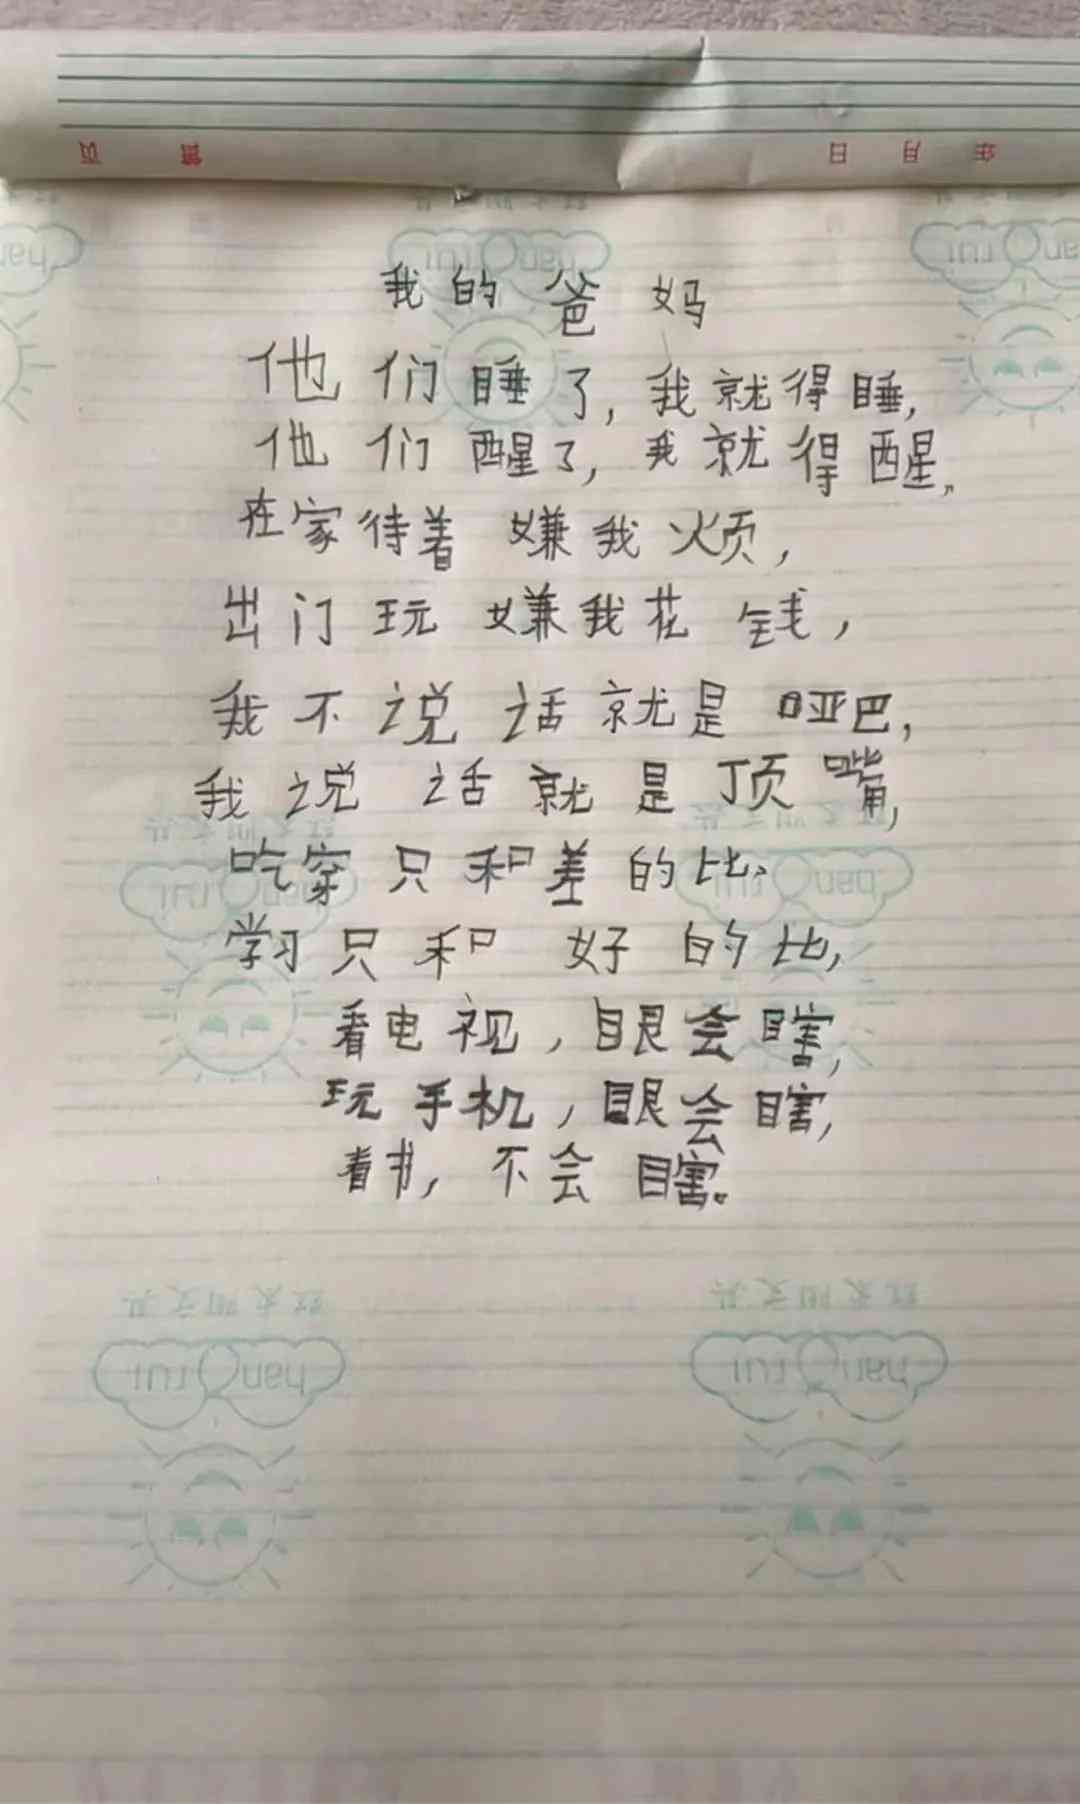 页 曾 日 月 年
我的爸妈
他们睡了,我就得睡,
他们醒了,我就得醒,
在家待着嫌我烦,
出门玩嫌我花钱,
我不说话就是哑巴,
我说话就是顶嘴,
吃穿只和差的比,
学习只和好的比,
看电视,眼会瞎,
玩手机,眼会瞎,
看书,不会瞎。